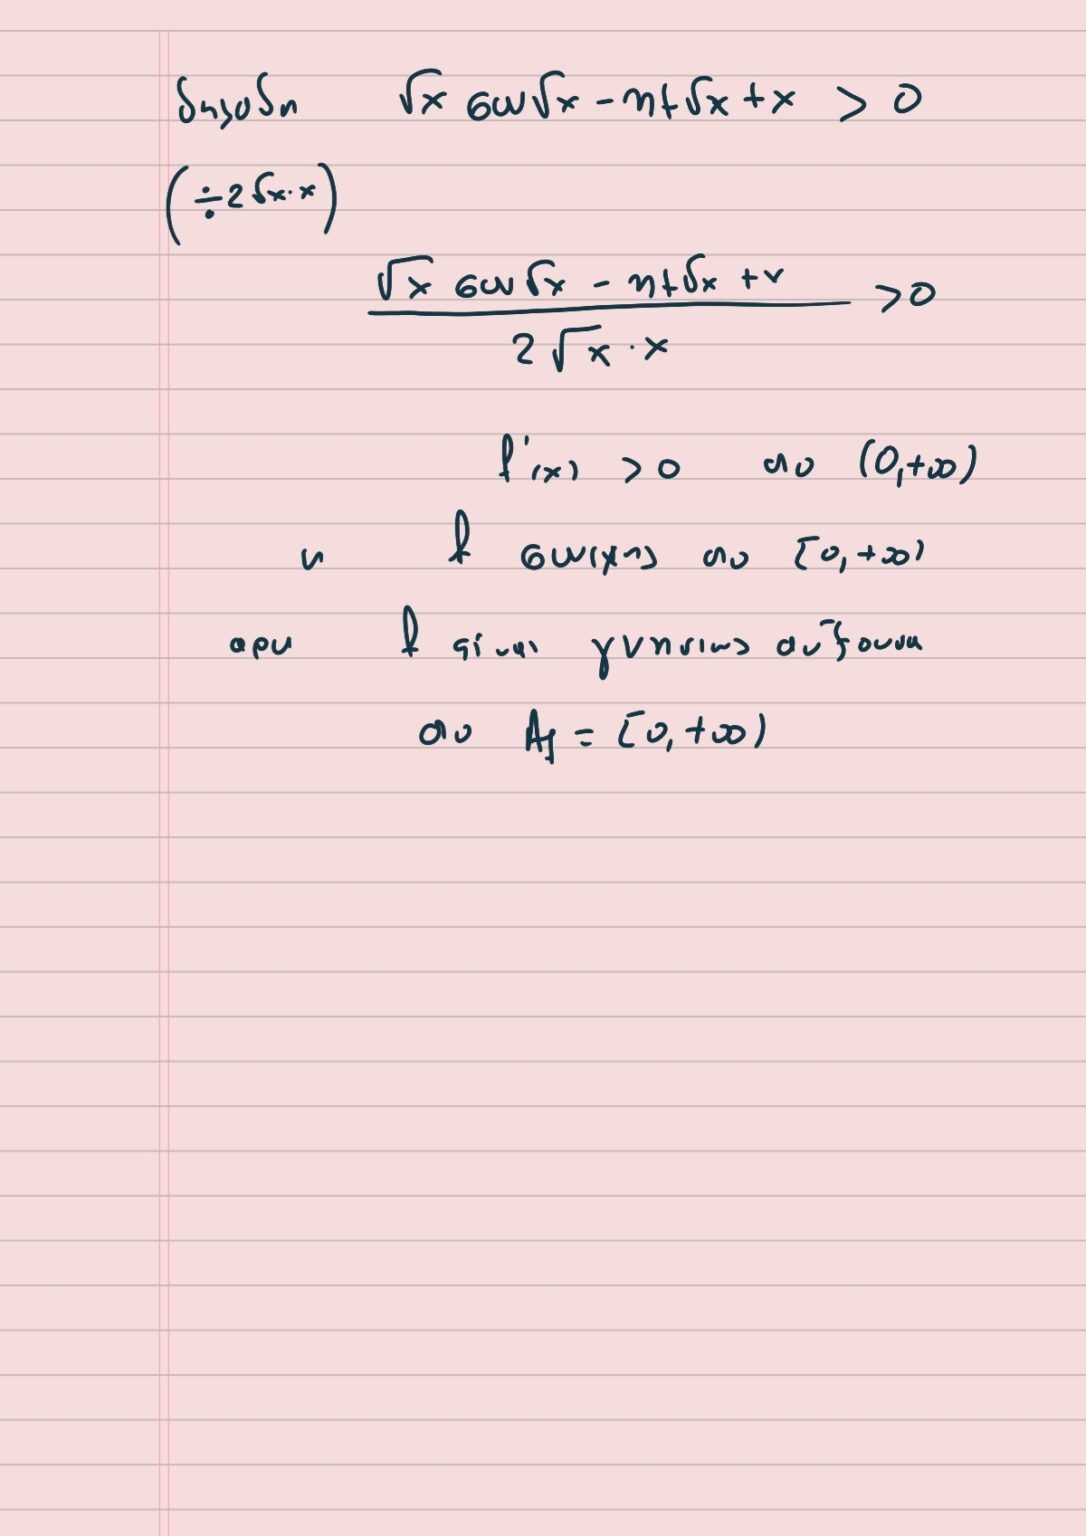 δηλαδή √x συν√x - ημ√x + x > 0
(÷2√x·x)
√x συν√x - ημ√x + x > 0
2√x · x
f'(x) > 0 στο (0,+∞)
η f συνεχης στο [0,+∞)
αρα f είναι γνησιως αύξουσα
στο Af = [0,+∞)